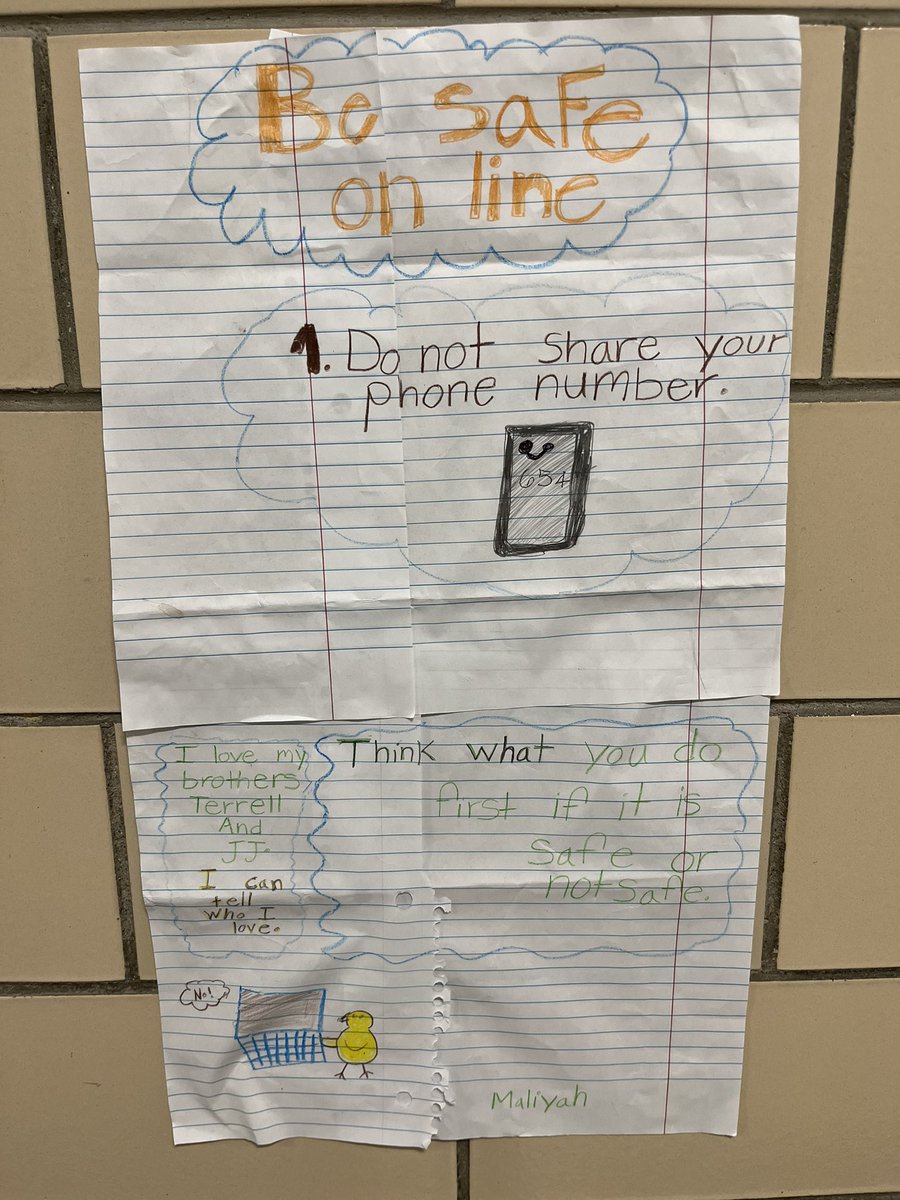 Be safe
on line
1. Do not share your
phone number.
654
I love my
brothers
Terrell
And
JJ.
I can
tell
who I
love.
Think what you do
first if it is
safe or
not safe.
No!
Maliyah